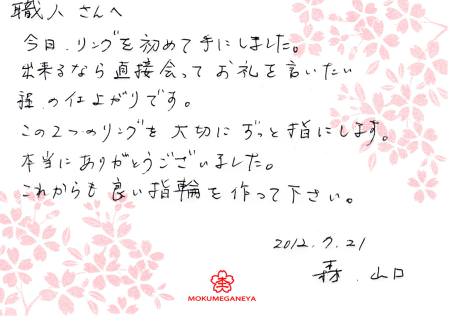 職人さんへ
今日、リングを初めて手にしました。
出来るなら直接会ってお礼を言いたい
程の仕上がりです。
この2つのリングを大切にずっと指にします。
本当にありがとうございました。
これからも良い指輪を作って下さい。
2012.7.21
森、山口
MOKUMEGANEYA